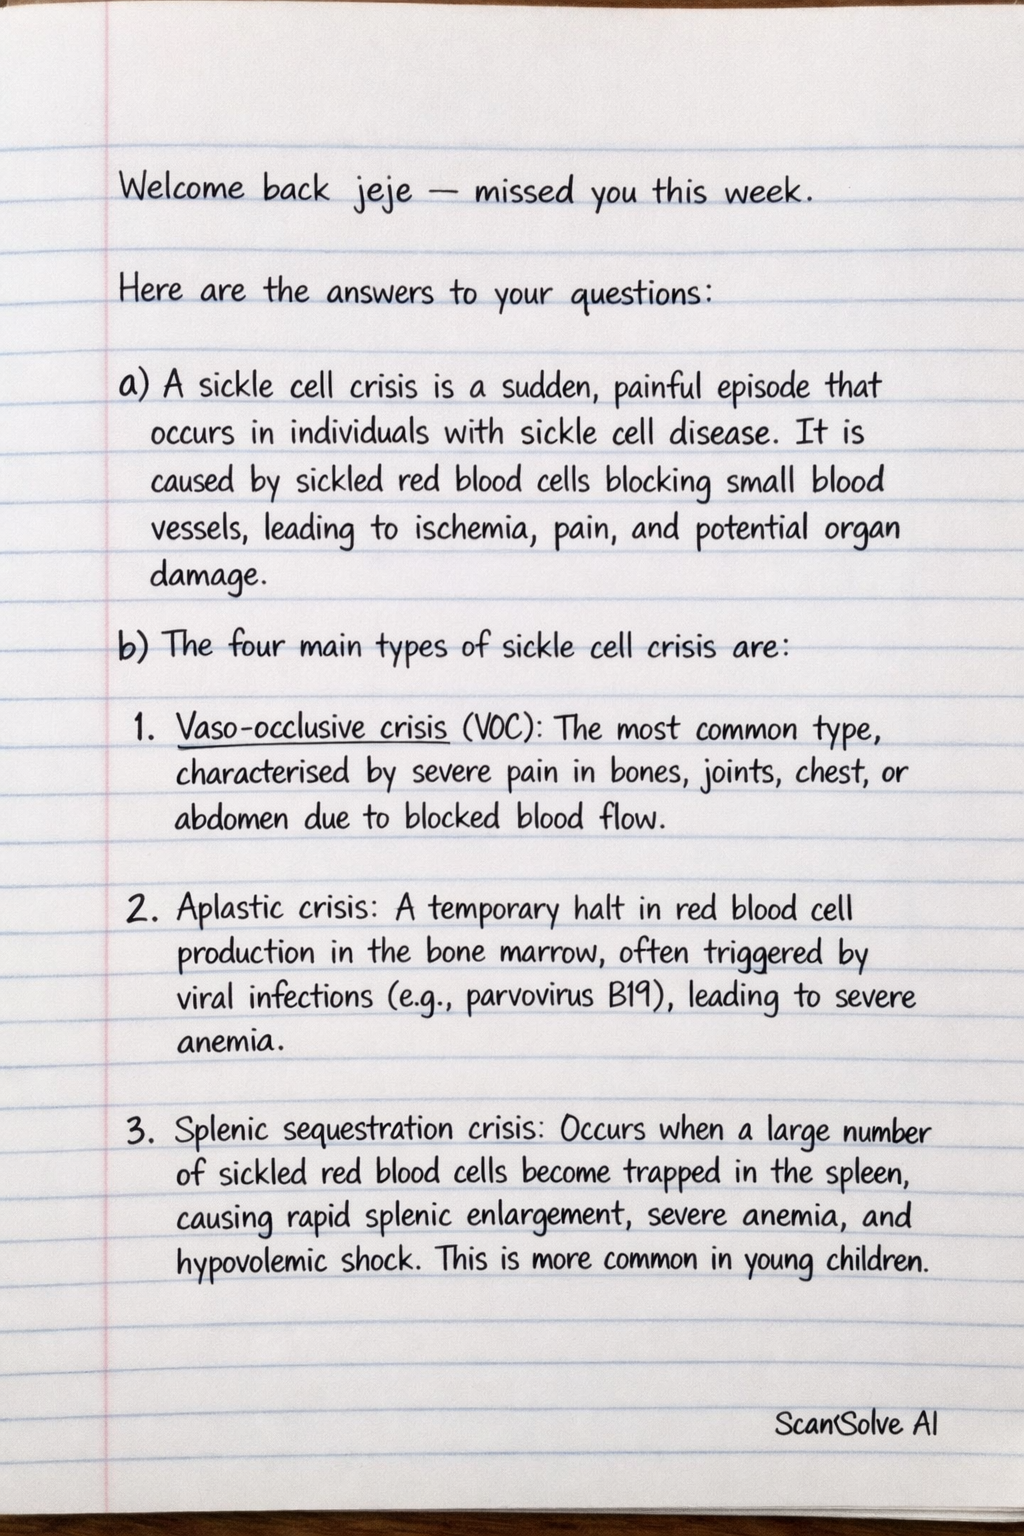 Welcome back jeje — missed you this week.
Here are the answers to your questions:
a) A sickle cell crisis is a sudden, painful episode that
occurs in individuals with sickle cell disease. It is
caused by sickled red blood cells blocking small blood
vessels, leading to ischemia, pain, and potential organ
damage.
b) The four main types of sickle cell crisis are:
1. Vaso-occlusive crisis (VOC): The most common type,
characterised by severe pain in bones, joints, chest, or
abdomen due to blocked blood flow.
2. Aplastic crisis: A temporary halt in red blood cell
production in the bone marrow, often triggered by
viral infections (e.g., parvovirus B19), leading to severe
anemia.
3. Splenic sequestration crisis: Occurs when a large number
of sickled red blood cells become trapped in the spleen,
causing rapid splenic enlargement, severe anemia, and
hypovolemic shock. This is more common in young children.
Scan(Solve AI